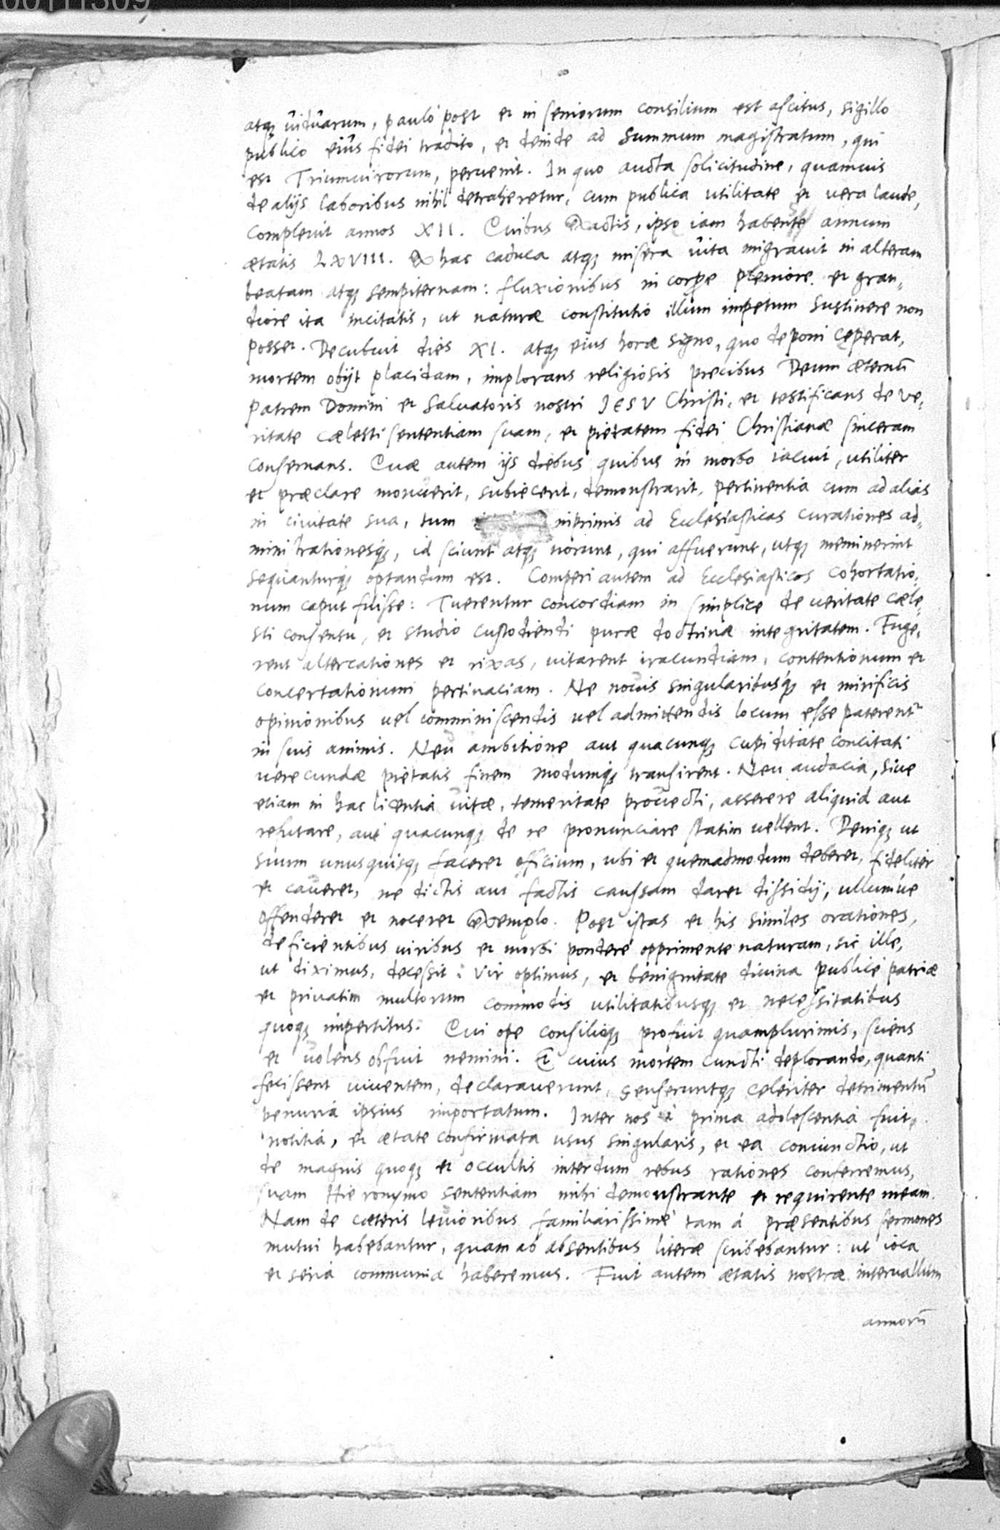 00111309
atq; viduarum, pauló post et in seniorum consilium est ascitus, sigillo
publico eius fidei tradito, et deinde ad Summum magistratum, qui
est Triumuirorum, peruenit. In quo aucta solicitudine, quamuis
de alijs laboribus nihil detraheretur, cum publica utilitate et vera laude,
compleuit annos XII. Quibus exactis, ipso iam habente annum
ætatis LXVIII. Ex hac caduca atq; misera vita migrauit in alteram
beatam atq; sempiternam: fluxionibus in corpore pleniore et gran,
diore ita incitatis, ut naturæ constitutio illum impetum sustinere non
posset. Decubuit dies XI. atq; eius horæ signo, quo deponi cęperat,
mortem obijt placidam, implorans religiosis precibus Deum æternū
patrem Domini et Saluatoris nostri IESV Christi, et testificans de ve,
ritate cælesti sententiam suam, et pietatem fidei Christianæ sinceram
conseruans. Quæ autem ijs diebus quibus in morbo iacuit, utiliter
et præclare monuerit, subiecerit, demonstrarit, pertinentia cum ad alias
in ciuitate sua, tum inprimis ad Ecclesiasticas curationes ad,
ministrationesq́;, id sciunt atq; norunt, qui affuerunt, utq; meminerint
sequanturq́; optandum est. Comperi autem ad Ecclesiasticos cohortatio,
num caput fuisse: Tuerentur concordiam in simplice de veritate cæle,
sti consensu, et studio custodiendi puræ doctrinæ integritatem. Fuge,
rent altercationes et rixas, vitarent iracundiam, contentionum et
concertationum pertinaciam. Ne nouis singularibusq́; et mirificis
opinionibus vel comminiscendis vel admittendis locum esse paterent
in suis animis. Neu ambitione aut quacunq; cupiditate concitati
verecundæ pietatis finem modumq́; transirent. Neu audacia, siue
etiam in hac licentia vitæ, temeritate prouecti, asserere aliquid aut
refutare, aut quacunq; de re pronunciare statim vellent. Deniq; ut
suum unusquisq; faceret officium, ubi et quemadmodum deberet, fideliter
et caueret, ne dictis aut factis caussam daret dissidij, ullumue
offenderet et noceret exemplo. Post istas et his similes orationes,
deficientibus viribus et morbi pondere opprimente naturam, sic ille,
ut diximus, decessit: Vir optimus, et benignitate diuina publicè patriæ
et priuatim multorum commodis utilitatibusq; et necessitatibus
quoq; impertitus. Qui ope consilioq; profuit quamplurimis, sciens
et volens obfuit nemini. Et cuius mortem cuncti deplorando, quanti
fecissent viuentem, declarauerunt, senseruntq; celeriter detrimentū
penuriâ ipsius importatum. Inter nos à prima adolescentiâ fuit
notitia, et ætate confirmata usus singularis, et ea coniunctio, ut
de magnis quoq; et occultis interdum rebus rationes conferremus,
suam Hieronymo sententiam mihi demonstrante et requirente meam.
Nam de cæteris leuioribus familiarissimè tam á præsentibus sermones
mutui habebantur, quam ab absentibus literæ scribebantur: ut ioca
et seria communia haberemus. Fuit autem ætatis nostræ interuallum
annorū